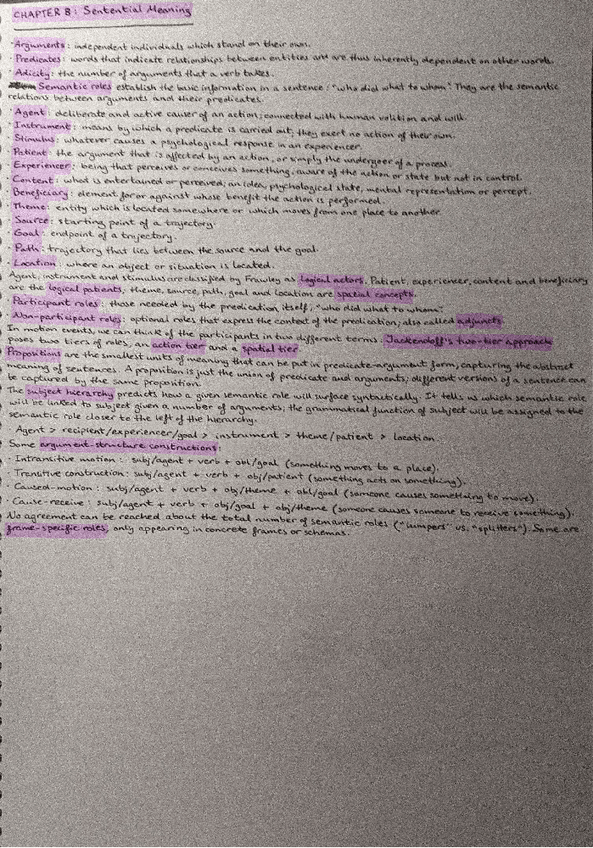 CHAPTER 8: Sentential Meaning
Arguments: independent individuals which stand on their own.
Predicates: words that indicate relationships between entities and are thus inherently dependent on other words.
Adicity: the number of arguments that a verb takes.
Semantic roles establish the basic information in a sentence: "who did what to whom". They are the semantic
relations between arguments and their predicates.
Agent: deliberate and active causer of an action; connected with human volition and will.
Instrument: means by which a predicate is carried out; they exert no action of their own.
Stimulus: whatever causes a psychological response in an experiencer.
Patient: the argument that is affected by an action, or simply the undergoer of a process.
Experiencer: being that perceives or conceives something; aware of the action or state but not in control.
Content: what is entertained or perceived; an idea, psychological state, mental representation or percept.
Beneficiary: element for or against whose benefit the action is performed.
Theme: entity which is located somewhere or which moves from one place to another.
Source: starting point of a trajectory.
Goal: endpoint of a trajectory.
Path: trajectory that lies between the source and the goal.
Location: where an object or situation is located.
Agent, instrument and stimulus are classified by Frawley as logical actors. Patient, experiencer, content and beneficiary
are the logical patients, theme, source, path, goal and location are spatial concepts.
Participant roles: those needed by the predication itself, "who did what to whom?"
Non-participant roles: optional roles that express the context of the predication; also called adjuncts.
In motion events, we can think of the participants in two different terms. Jackendoff's two-tier approach
poses two tiers of roles, an action tier and a spatial tier.
Propositions are the smallest units of meaning that can be put in predicate-argument form, capturing the abstract
meaning of sentences. A proposition is just the union of predicate and arguments; different versions of a sentence can
be captured by the same proposition.
The subject hierarchy predicts how a given semantic role will surface syntactically. It tells us which semantic role
will be linked to subject given a number of arguments; the grammatical function of subject will be assigned to the
semantic role closer to the left of the hierarchy.
Agent > recipient/experiencer/goal > instrument > theme/patient > location.
Some argument-structure constructions:
- Intransitive motion: subj/agent + verb + obl/goal (something moves to a place).
- Transitive construction: subj/agent + verb + obj/patient (something acts on something).
- Caused-motion: subj/agent + verb + obj/theme + obl/goal (someone causes something to move).
- Cause-receive: subj/agent + verb + obj/goal + obj/theme (someone causes someone to receive something).
No agreement can be reached about the total number of semantic roles ("lumpers" vs. "splitters"). Some are
frame-specific roles, only appearing in concrete frames or schemas.